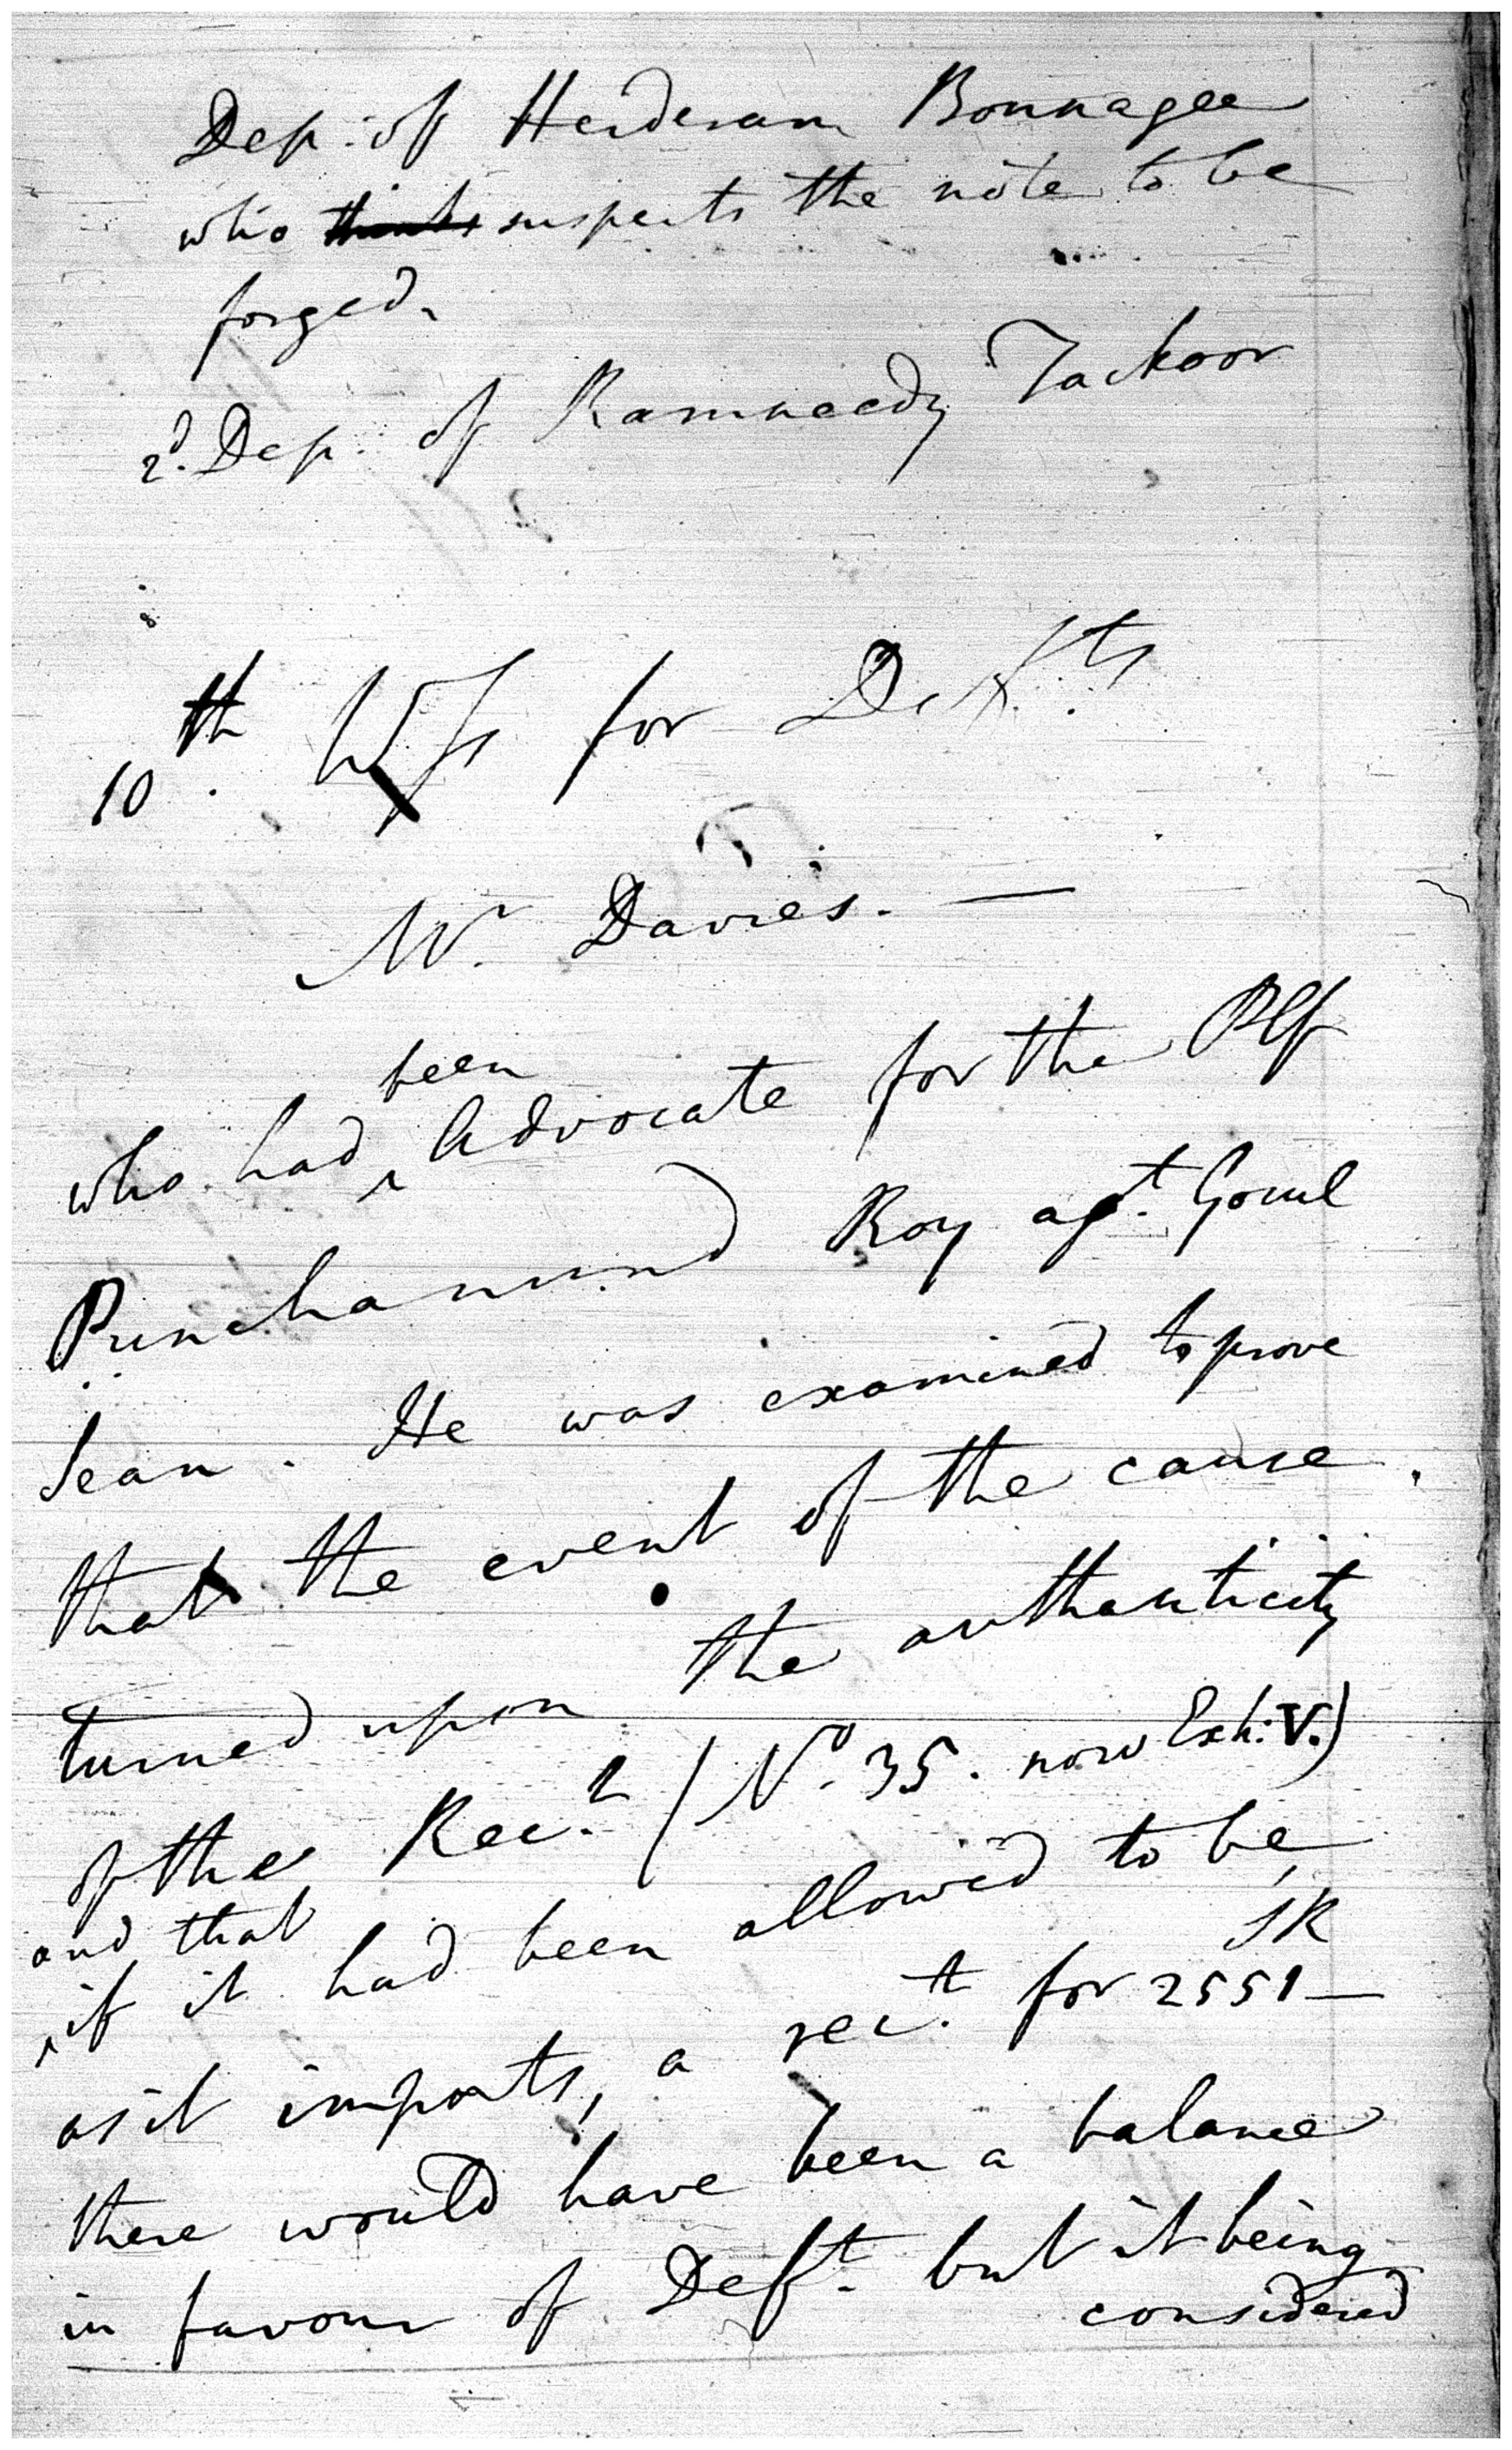 Dep: of Herderam Bonnagee
who thinks suspects the note to be
forged.
2d. Dep: of Ramneedy Tackoor
10th. Wss for Defts
Mr. Davies. —
been
who had ^ Advocate for the Plf
Punchanund Roy agt. Gocul
Sean. He was examined to prove
that the event of the cause
turned upon the authenticity
of the Rect. (No. 35. now Exh: V.)
and that
^ if it had been allowed to be,
SR
as it imports, a rect. for 2551 —
there would have been a balance
in favour of Deft. but it being
considered